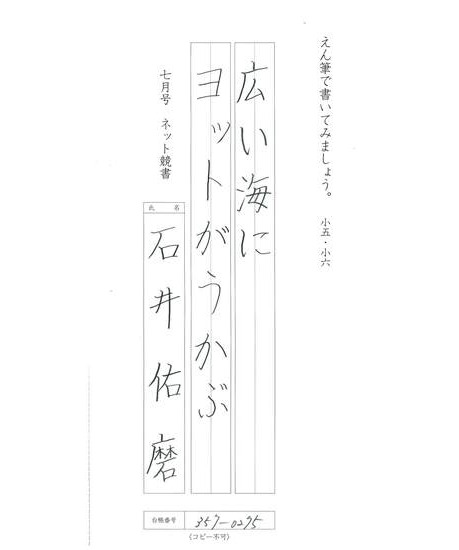 えん筆で書いてみましょう。 小五・小六
広い海に
ヨットがうかぶ
七月号 ネット競書
氏名
石井佑磨
台帳番号 357-0275
(コピー不可)